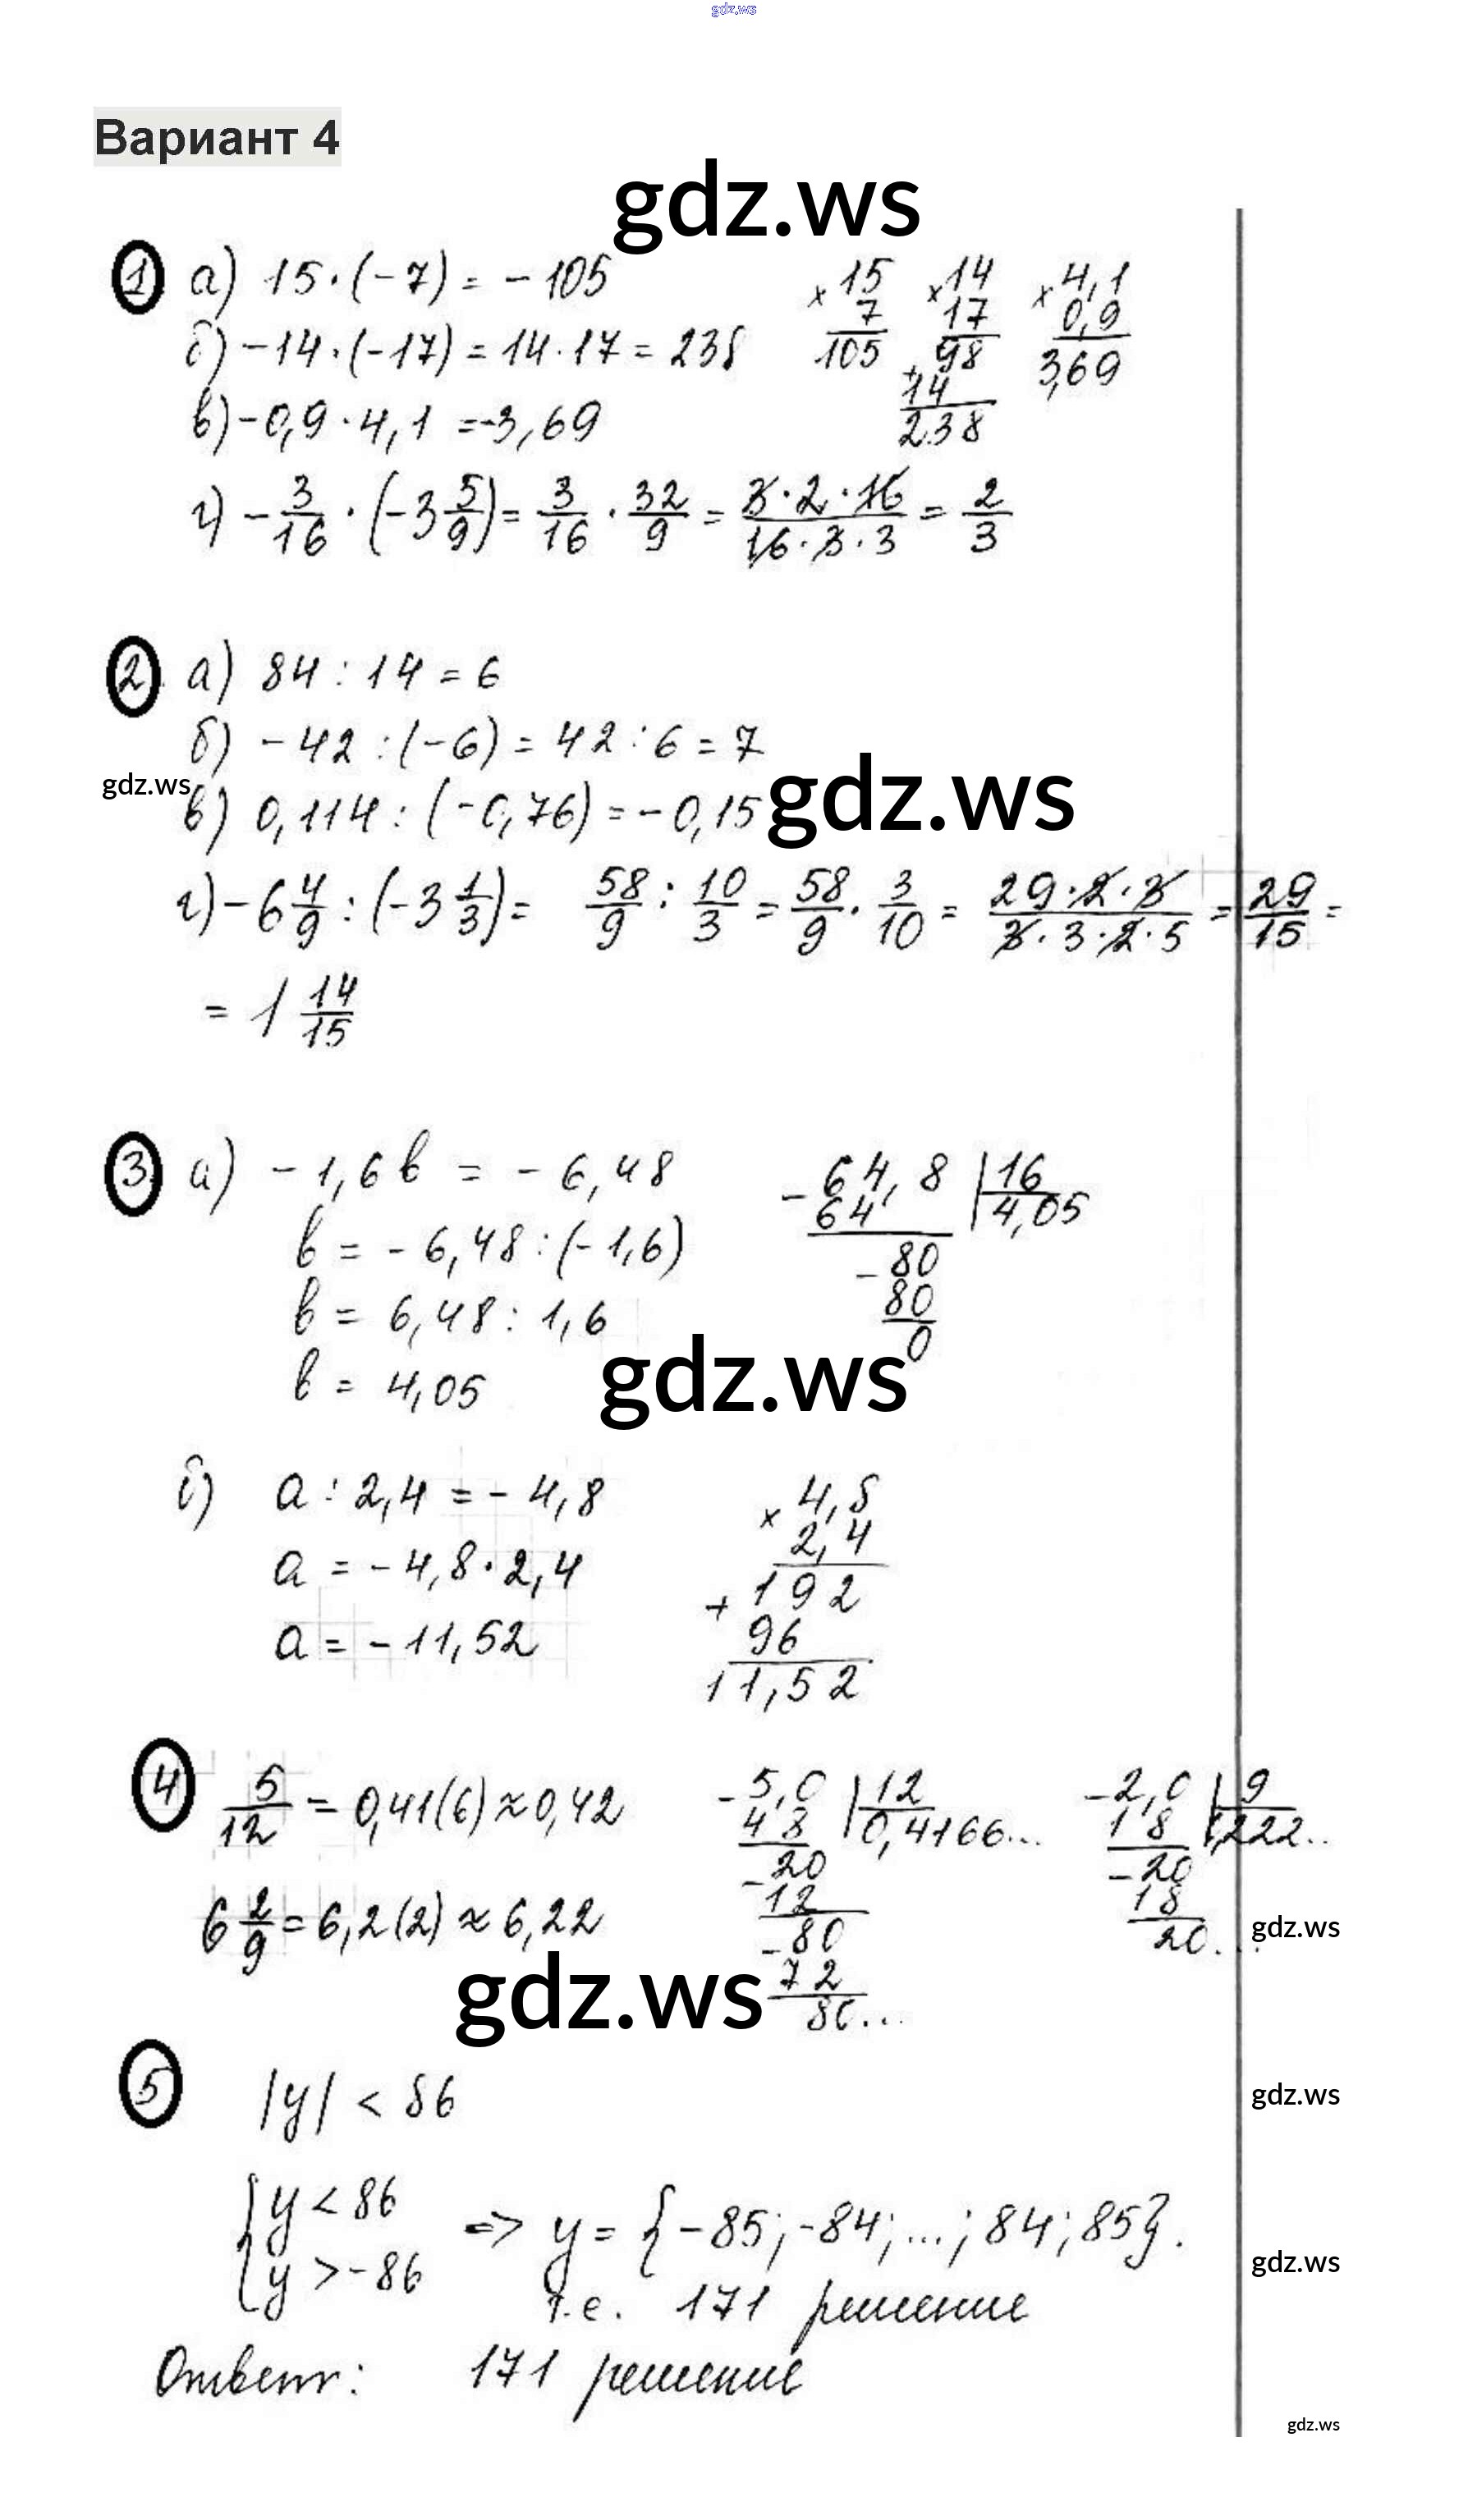 gdz.ws
Вариант 4
gdz.ws
1 а) 15·(-7) = -105
б) -14·(-17) = 14·17 = 238
в) -0,9·4,1 = -3,69
г) -3/16 · (-3 5/9) = 3/16 · 32/9 = 3·2·16/16·3·3 = 2/3
× 15
7
105
× 14
17
98
+ 14
238
× 4,1
0,9
3,69
2 а) 84 : 14 = 6
б) -42 : (-6) = 42 : 6 = 7
gdz.ws
в) 0,114 : (-0,76) = -0,15
gdz.ws
г) -6 4/9 : (-3 1/3) = 58/9 : 10/3 = 58/9 · 3/10 = 29·2·3/3·3·2·5 = 29/15 =
= 1 14/15
3 а) -1,6 в = -6,48
в = -6,48 : (-1,6)
в = 6,48 : 1,6
в = 4,05
- 64,8 | 16
64 4,05
- 80
80
0
gdz.ws
б) а : 2,4 = -4,8
а = -4,8 · 2,4
а = -11,52
× 4,8
2,4
+ 192
96
11,52
4 5/12 = 0,41(6) ≈ 0,42
6 2/9 = 6,2(2) ≈ 6,22
- 5,0 | 12
48 0,4166...
- 20
12
- 80
72
80...
- 2,0 | 9
18 ,222..
- 20
18
20...
gdz.ws
gdz.ws
5 |y| < 86
gdz.ws
{ y < 86
y > -86
=> y = {-85; -84; ...; 84; 85}.
gdz.ws
т.е. 171 решение
Ответ: 171 решение
gdz.ws